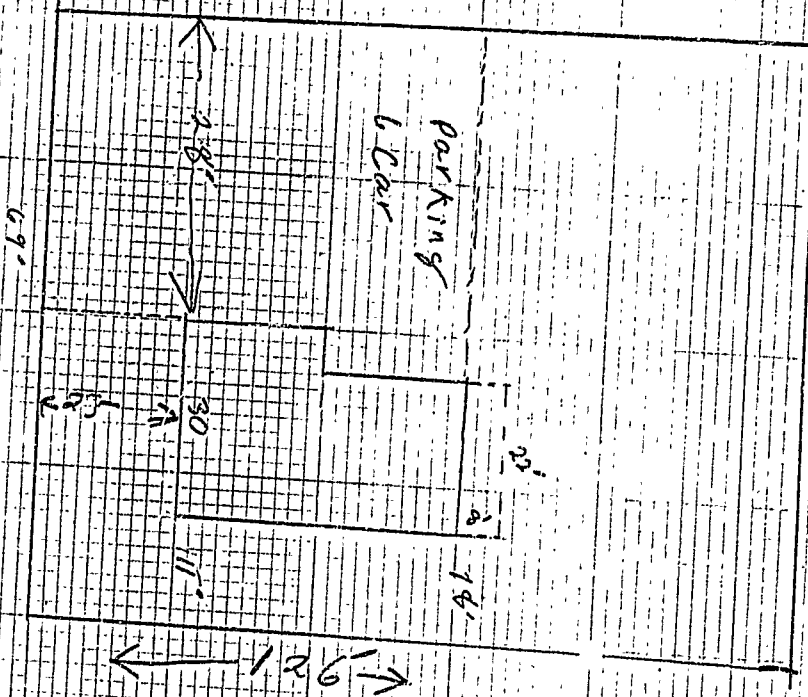 Parking
6 Car
28'
69.
23'
30
22'
8'
11'
18'
126'